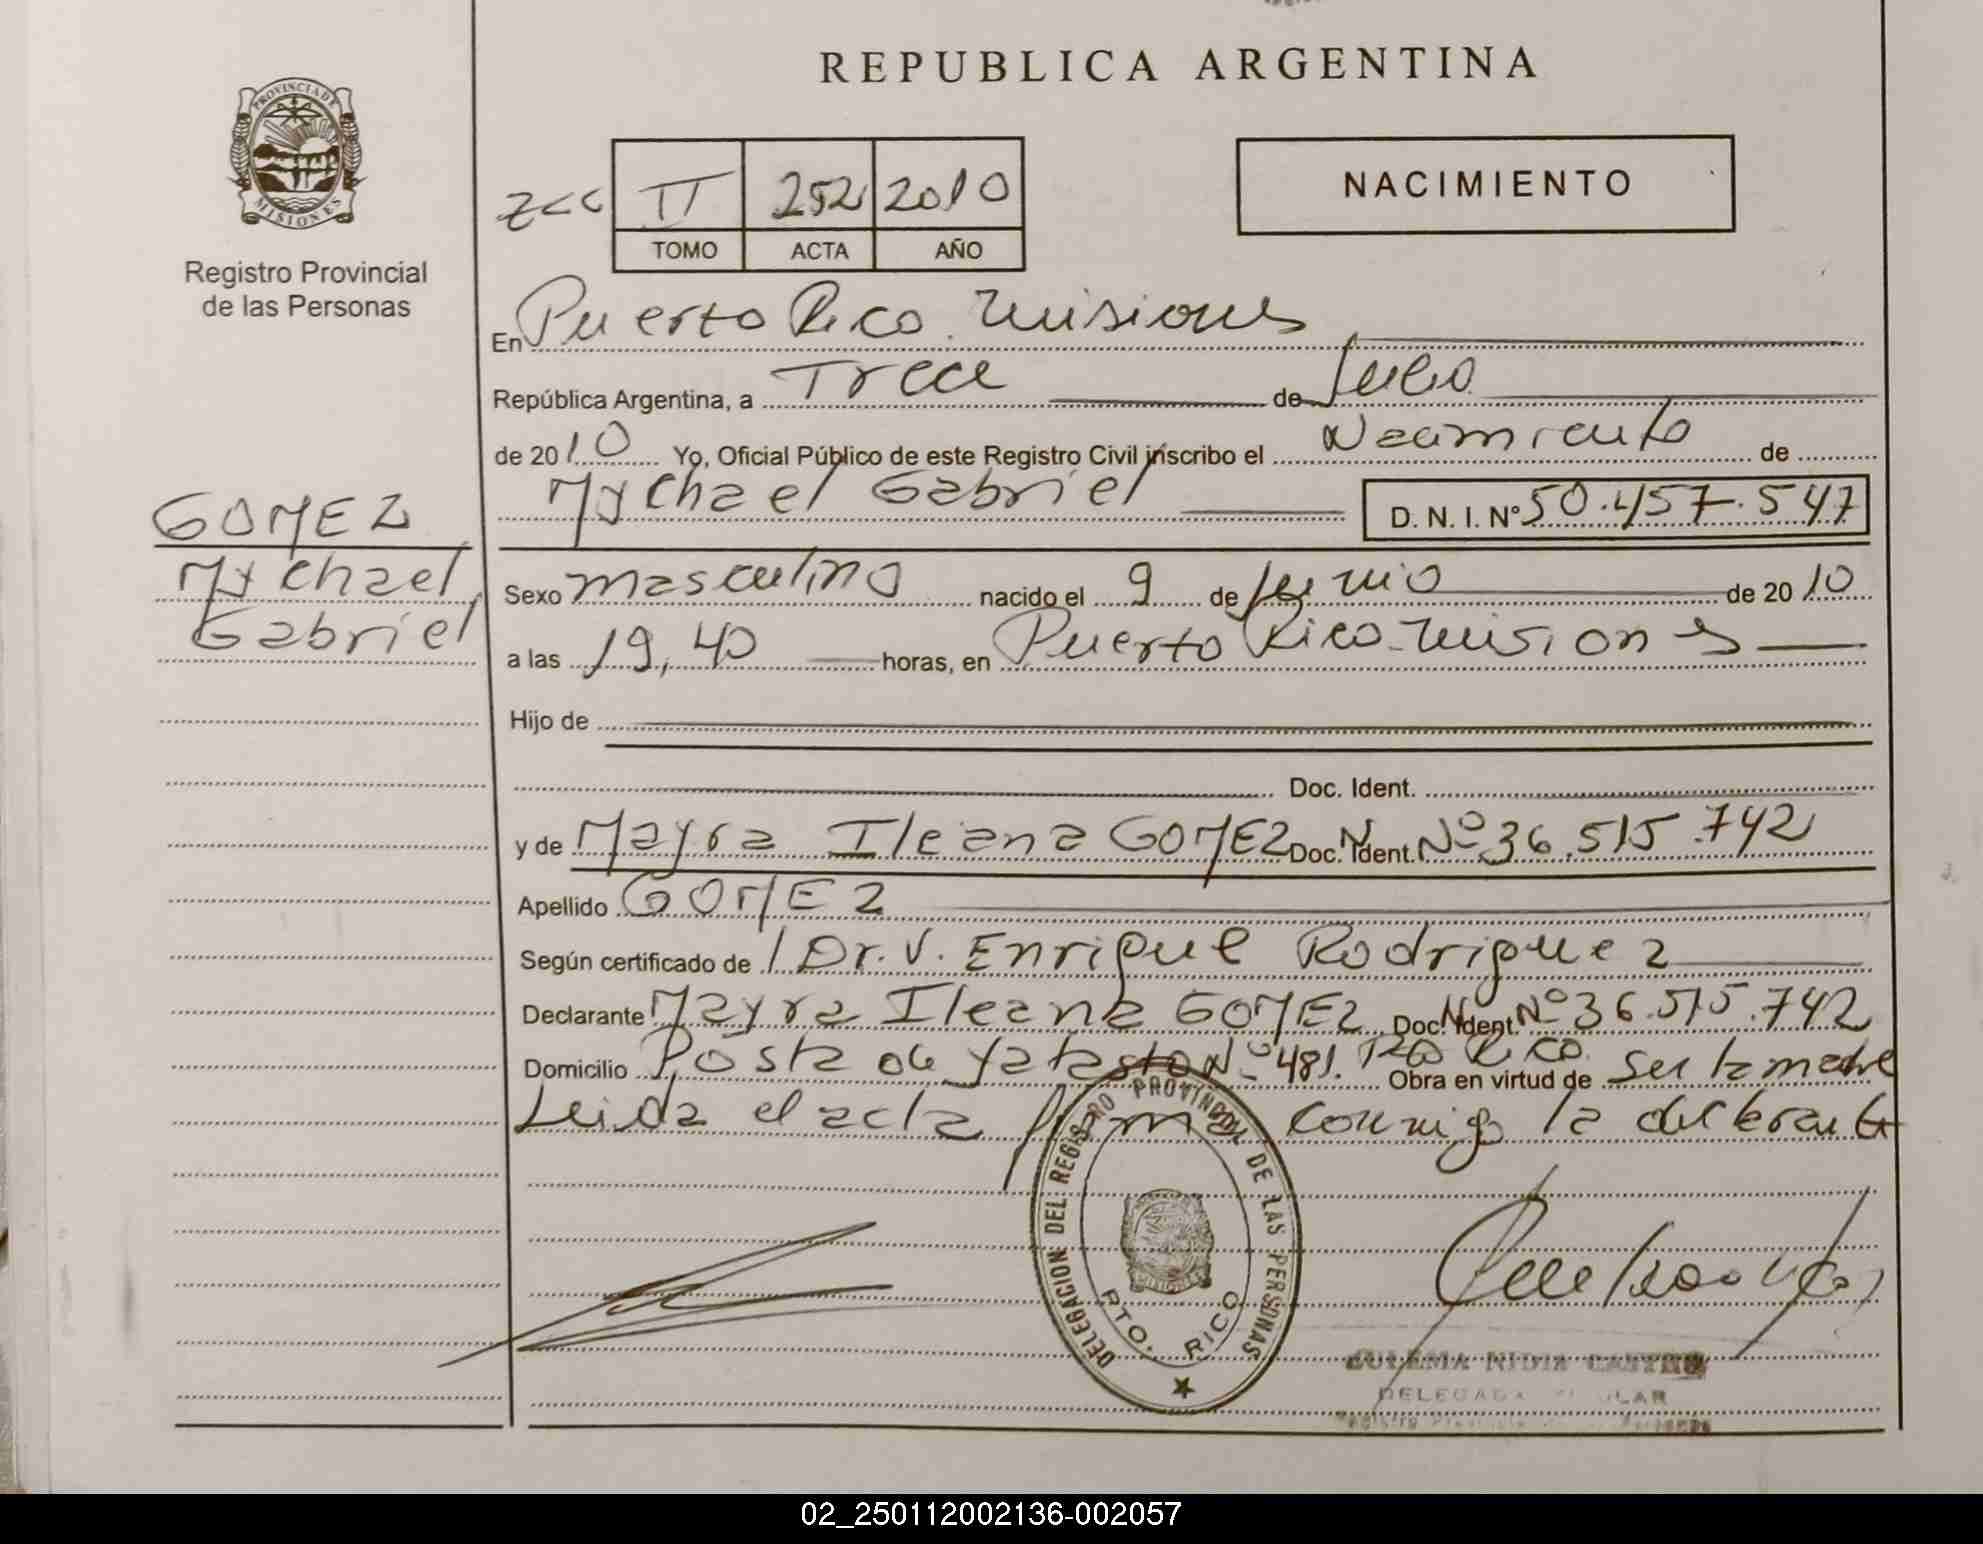 REPUBLICA ARGENTINA
PROVINCIA DE MISIONES
Registro Provincial
de las Personas
II 252 2010
TOMO ACTA AÑO
NACIMIENTO
En Puerto Rico. Misiones
República Argentina, a Trece de Julio
de 2010 Yo, Oficial Público de este Registro Civil inscribo el Nacimiento de
Mychael Gabriel D. N. I. Nº 50.457.547
GOMEZ
Mychael
Gabriel
Sexo masculino nacido el 9 de Junio de 2010
a las 19,40 horas, en Puerto Rico-Misiones
Hijo de
Doc. Ident.
y de Mayra Ileana GOMEZ Doc. Ident. Nº 36.515.742
Apellido GOMEZ
Según certificado de / Dr. V. Enrique Rodriguez
Declarante Mayra Ileana GOMEZ Doc. Ident. Nº 36.515.742
Domicilio Posta de Yatasto Nº 481. Pto Rico. Obra en virtud de ser la madre
Leida el acta firma conmigo la declarante
DELEGACION DEL REGISTRO PROVINCIAL DE LAS PERSONAS
PTO. RICO
ZULEMA NIDIA CASTRO
DELEGADA TITULAR
Registro Provincial de las Personas
02_250112002136-002057